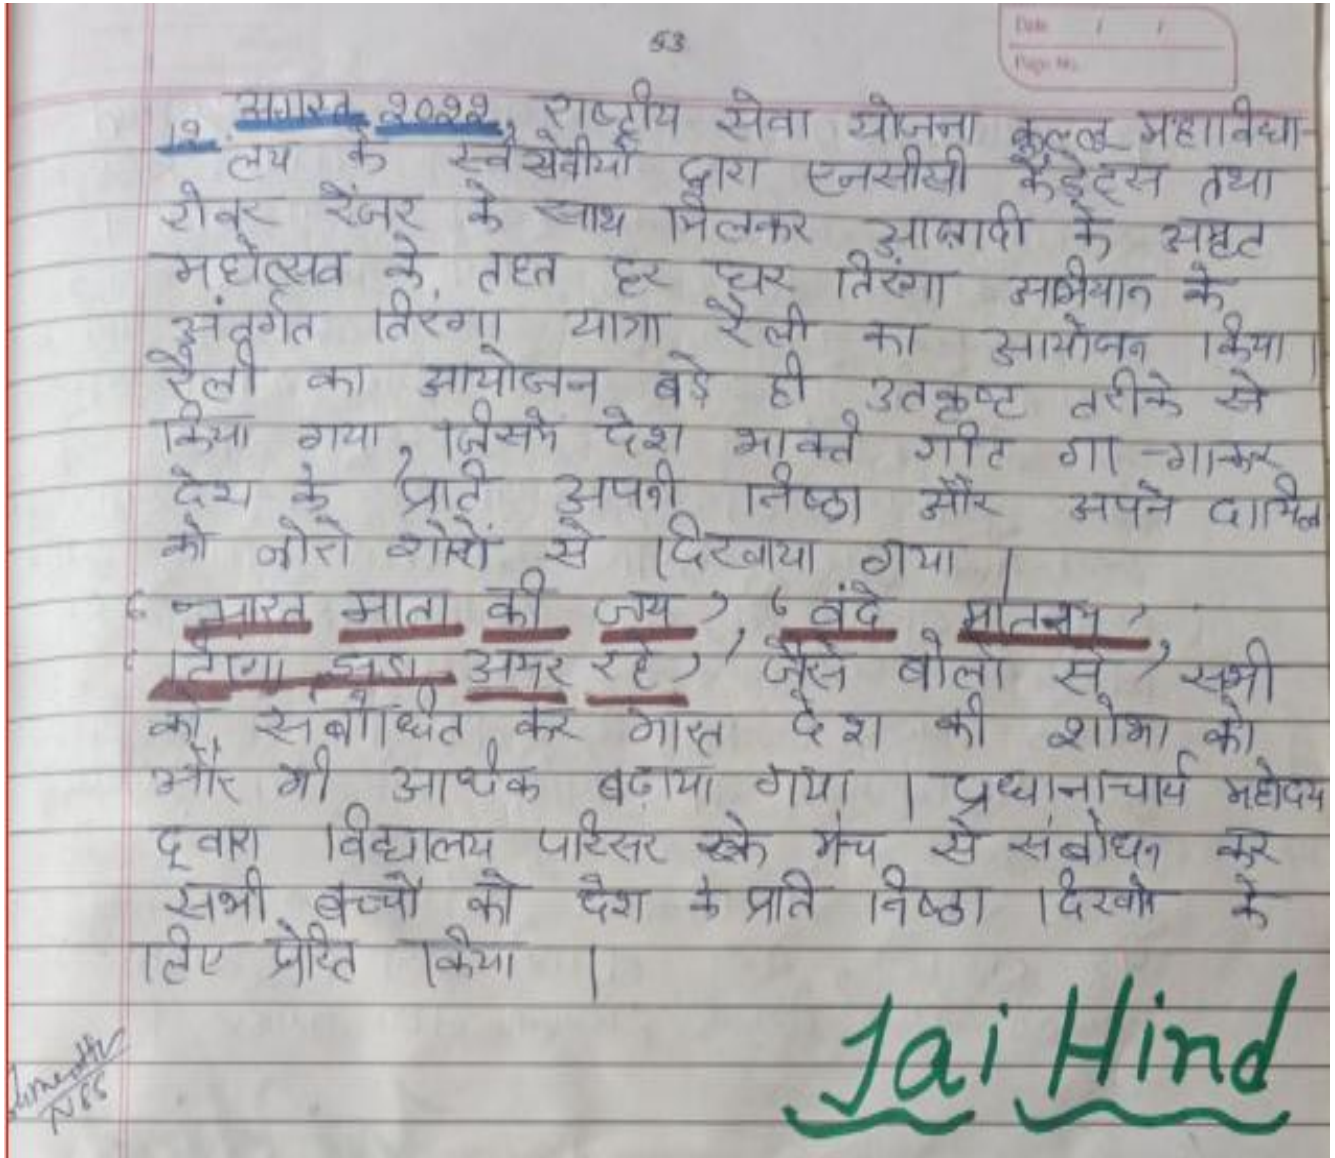 53
Date / /
Page No.
अगस्त २०२२, राष्ट्रीय सेवा योजना कुल्लू महाविधा-
१२ लय के स्वंसेवीयों द्वारा एनसीसी कैडेट्स तथा
रोवर रेंजर के साथ मिलकर आजादी के अमृत
महोत्सव के तहत हर घर तिरंगा अभियान के
अंतर्गत तिरंगा यात्रा रैली का आयोजन किया।
रैली का आयोजन बड़े ही उतकृष्ट तरीके से
किया गया, जिसमे देश भक्ति गीत गा-गाकर
देश के प्रति अपनी निष्ठा और अपने दायित्व
को जोरो शोरों से दिखाया गया।
'भारत माता की जय', 'वंदे मातरम',
'तिरंगा झंडा अमर रहे', जैसे बोलो से, सभी
को संबोधित कर भारत देश की शोभा को
और भी अधिक बढ़ाया गया। प्रधानाचार्य महोदय
द्वारा विद्यालय परिसर के मंच से संबोधन कर
सभी बच्चों को देश के प्रति निष्ठा दिखाने के
लिए प्रेरित किया।
Jai Hind
NSS